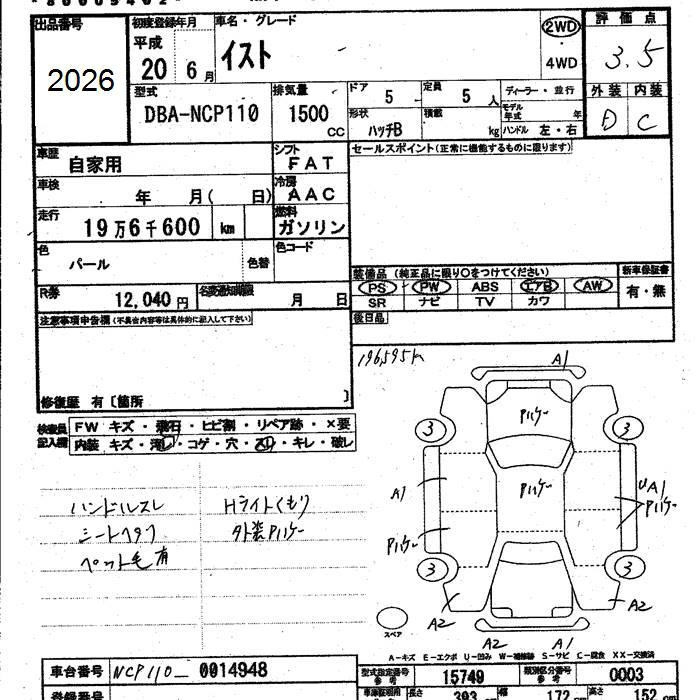 出品番号
2026
初度登録年月
平成
20 6月
車名・グレード
イスト
2WD
4WD
評価点
3.5
型式
DBA-NCP110
排気量
1500
CC
ドア 5
定員 5 人
形状 ハッチB
積載 kg
ディーラー・並行
モデル年式 年
ハンドル 左・右
外装 内装
D C
車歴
自家用
シフト
FAT
セールスポイント(正常に機能するものに限ります)
車検
年 月( 日)
冷房
AAC
走行
19万6千600 km
燃料
ガソリン
色
パール
色替
色コード
装備品 (純正品に限り○をつけてください)
PS PW ABS エアB AW
SR ナビ TV カワ
新車保証書
有・無
R券
12,040円
名変通知期限
月 日
後日品
注意事項申告欄(不具合内容等は具体的に記入して下さい)
修復歴 有〔箇所 〕
196,595km
検査員記入欄
FW キズ・飛石・ヒビ割・リペア跡・×要
内装 キズ・汚レ・コゲ・穴・スレ・キレ・破レ
ハンドルスレ
シートヘタリ
ペット毛有
Hライトくもり
外装Pハゲ
A1
Pハゲ
3
3
A1
Pハゲ
UA1
Pハゲ
Pハゲ
3
3
A2
A2
スペア
A2
A1
A-キズ E-エクボ U-凹み W-補修跡 S-サビ C-腐食 XX-交換済
車台番号
NCP110- 0014948
型式指定番号
参考
15749
類別区分番号
参考
0003
登録番号
長さ 393 cm
幅 172 cm
高さ 152 cm